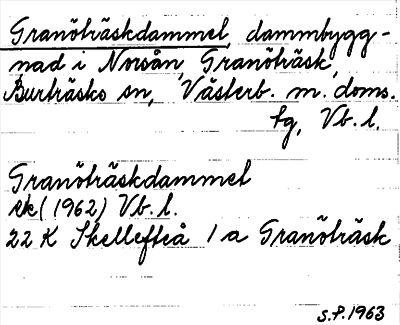 Granöträskdammet, dammbygg-
nad i Norsån, Granöträsk,
Burträsks sn, Västerb. m. doms.
tg, Vb. l.
Granöträskdammet
ek (1962) Vb. l.
22 K Skellefteå 1 a Granöträsk
S.P. 1963